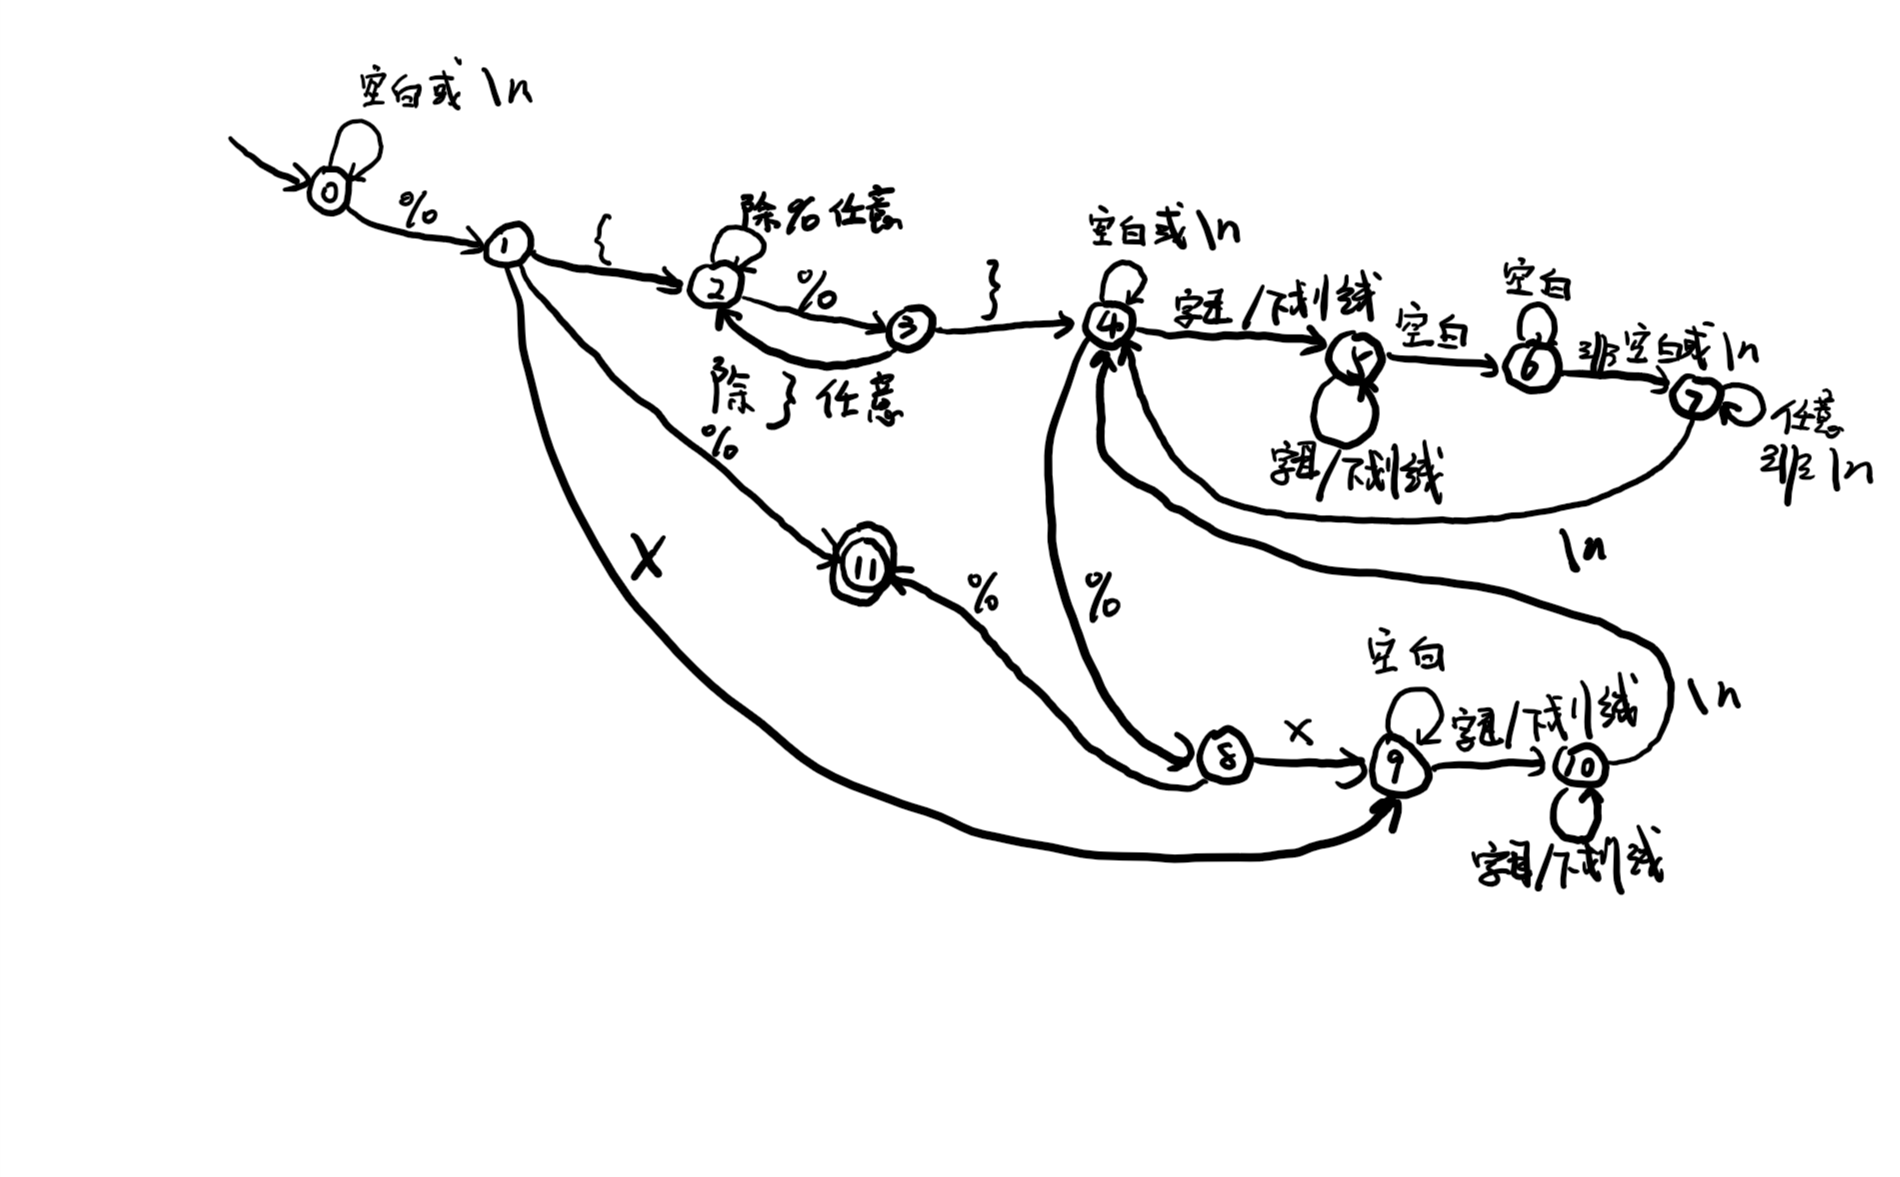 空白或 \n
0
%
1
{
除%任意
2
%
3
除 } 任意
}
空白或 \n
4
字母/下划线
5
字母/下划线
空白
空白
6
非空白或 \n
7
任意
非 \n
\n
%
11
X
%
%
8
X
空白
9
字母/下划线
10
字母/下划线
\n